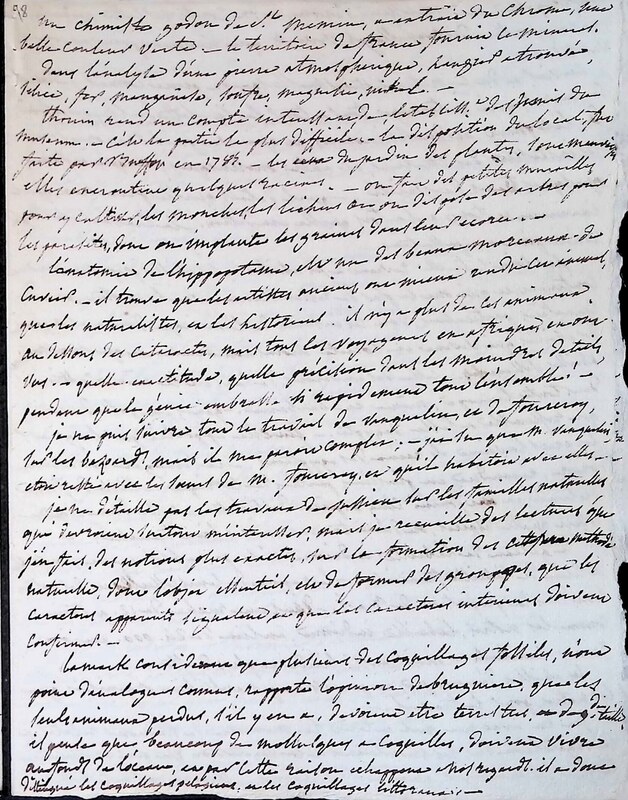 98
un chimiste godon de St memin, a extrait du Chrome, une
belle couleur verte — le territoire de france fournit ce mineral.
dans l'analyse d'une pierre atmospherique, Laugier a trouvé,
silice, fer, manganese, soufre, magnesie, nikel. —
thouin rend un compte interessant de l'etabliss.t de semis du
museum. — c'est la partie la plus difficile — la disposition du local, fut
faite par Buffon en 178 — les eaux du jardin des plantes, sont
elles encroutent quelques racines. — on fait des petites murailles
pour y cultiver, les mousses, les lichens et on dispose des arbres pour
les parasites, dont on implante les graines dans leur ecorce. —
l'anatomie de l'hippopotame, est un des beaux morceaux de
Cuvier. — il trouve que les artistes anciens ont mieux rendu cet animal,
que les naturalistes, et les historiens. il n'y a plus de ces animaux
au dessous des cataractes, mais tous les voyageurs en afrique en ont
vus. — quelle exactitude, quelle precision dans les moindres details,
pendant que le génie embrasse si rapidement tout l'ensemble! —
je ne puis suivre tout le travail de vauquelin, et de fourcroy,
sur les bezoards, mais il me paroit complet. — j'ai lu que M. vauquelin
etoit resté avec les soeurs de M. fourcroy, et qu'il habitoit avec elles —
je ne détaille pas les travaux de jussieu sur les familles naturelles
qui devroient surtout m'interesser, mais je recueille des lectures que
j'en fais, des notions plus exactes, sur la formation des methode
naturelle, dont l'objet essentiel, est de former des grouppes, que les
caracteres apparents signalent et que les caracteres interieurs doivent
confirmer. —
lamark considerant que plusieurs des coquillages fossiles, n'ont
point d'analogues connus, rapporte l'opinion de bruguiere, que les
seuls animaux perdus, s'il y en a, devoient etre terrestres, et de
il pense que beaucoup de mollusques a coquilles, doivent vivre
au fond de l'ocean, et par cette raison echappent a nos regards. il a donc
distingué les coquillages pelagiens, et les coquillages littoraux —